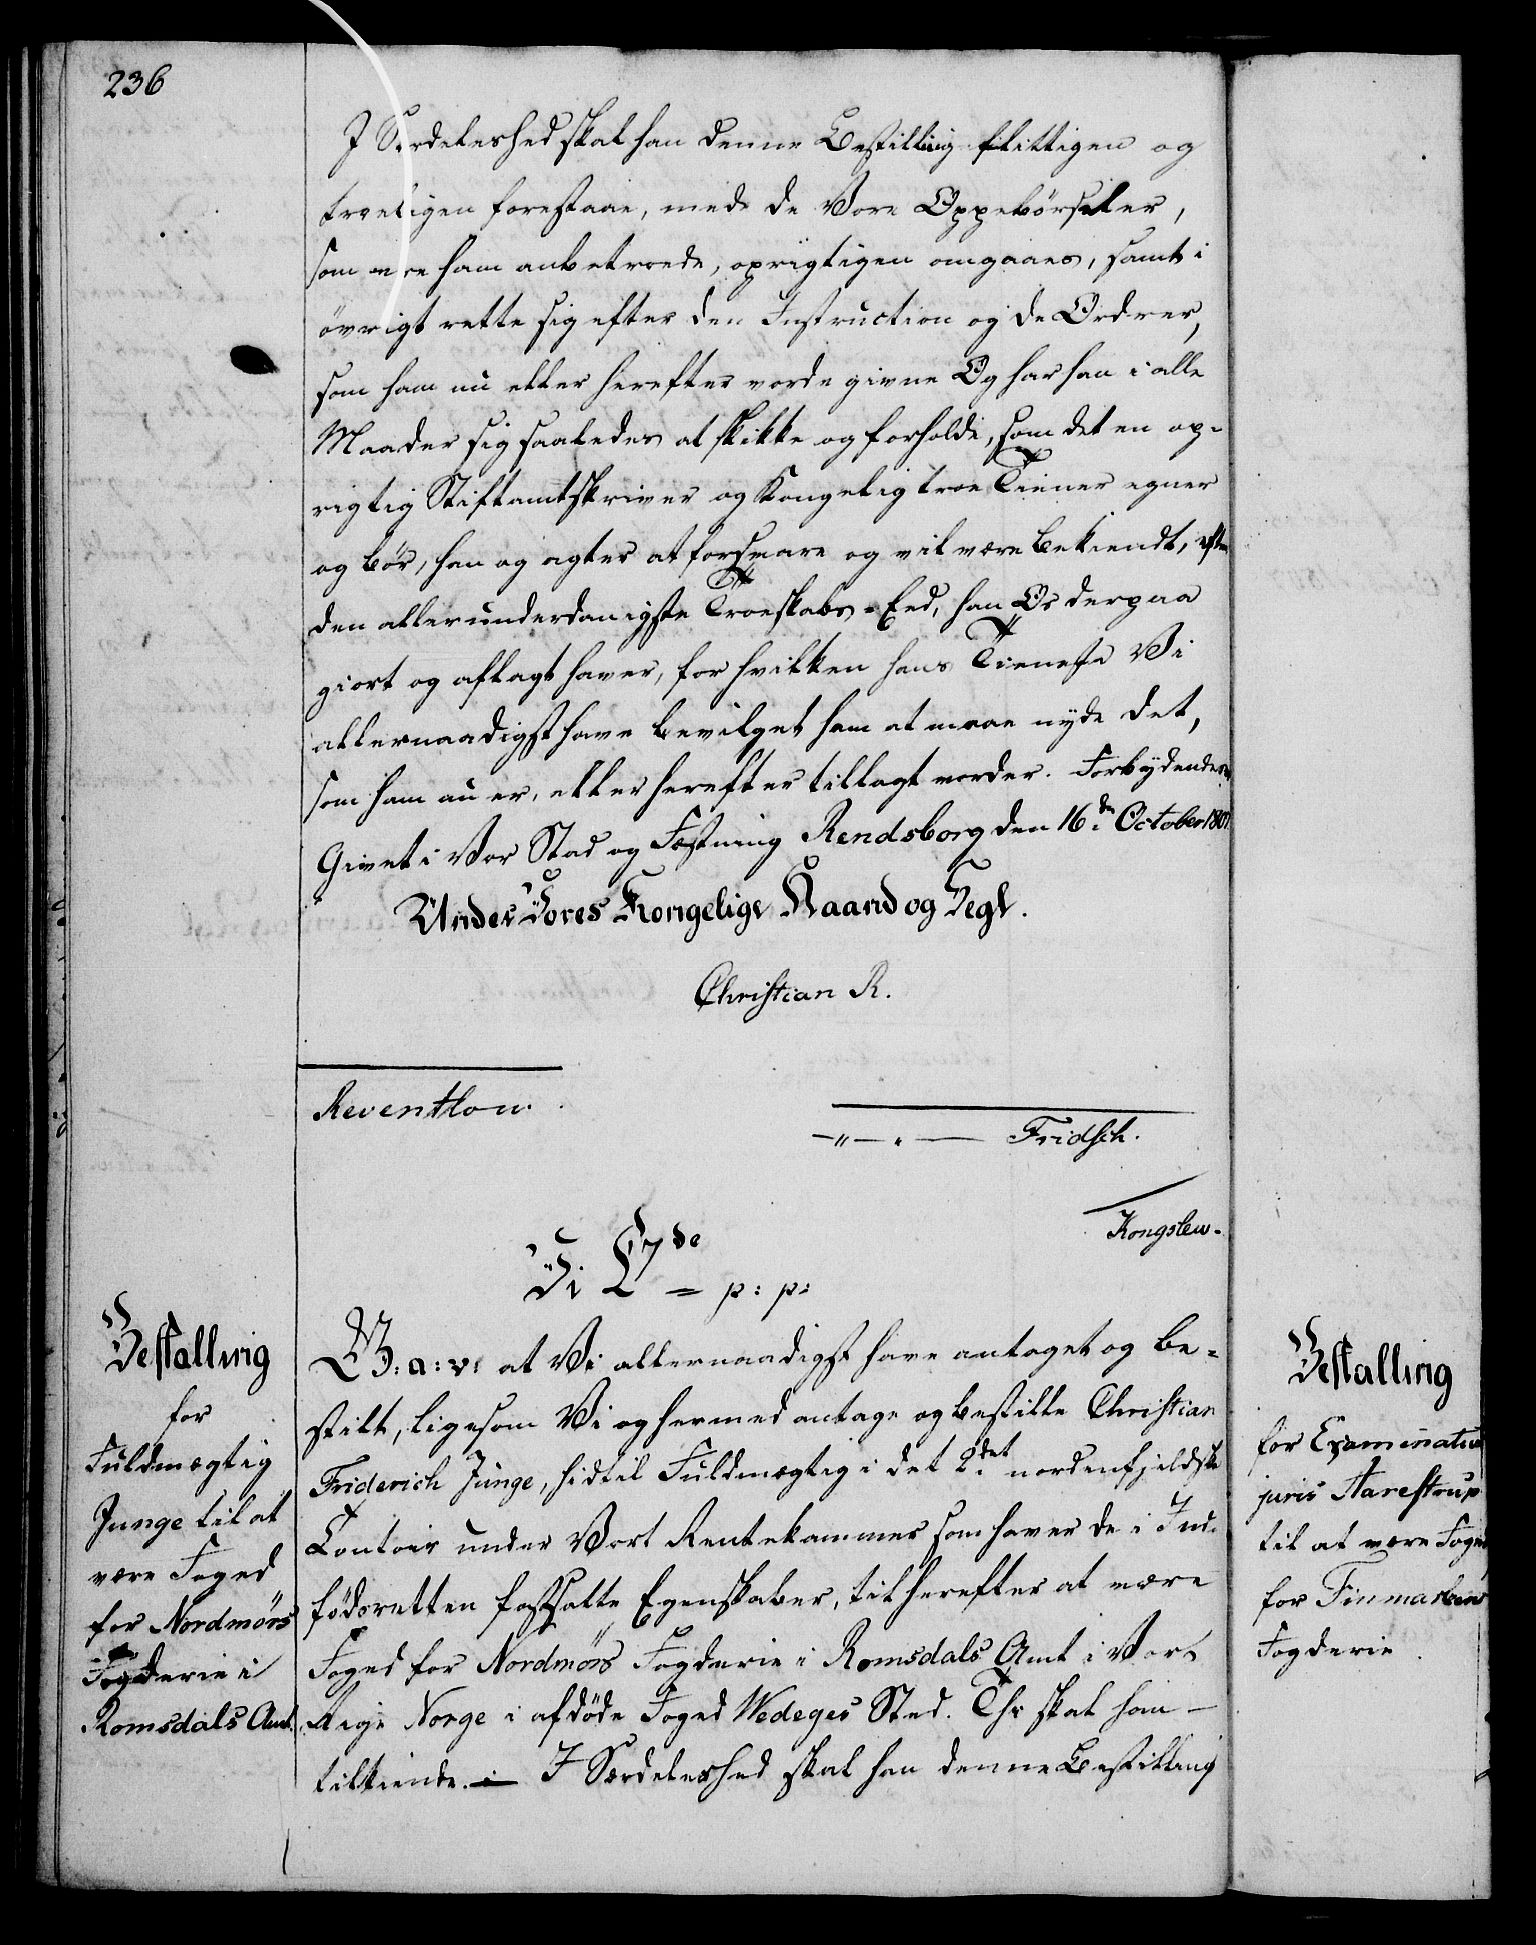 236
I Særdeleshed skal han denne Bestilling flittigen og
troeligen forestaae, med de Vore Oppebörseler,
som ere ham anbetroede, oprigtigen omgaaes, samt i
övrigt rette sig efter den Instruction og de Ordrer,
som ham nu eller herefter vorde givne Og har han i alle
Maader sig saaledes at skikke og forholde, som det en op-
rigtig Stiftamtskriver og Kongelig troe Tiener egner
og bör, han og agter at forsvare og vil være bekiendt, efter
den allerunderdanigste Troeskabs-Eed, han Os derpaa
giort og aflagt haver, for hvilken hans Tieneste Vi
allernaadigst have bevilget ham at maae nyde det,
som ham nu er, eller herefter tillagt vorder. Forbydendes
Givet i Vor Stad og Fæstning Rendsborg den 16de October 1807
Under Vores Kongelige Haand og Segl.
Christian R.
Reventlow.
—„—.— Fridsch.
Kongslew.
Vi C 7de = p: p:
Bestalling
for
Fuldmægtig
Junge til at
være Foged
for Nordmörs
Fogderie i
Romsdals Amt.
G: a: v: at Vi allernaadigst have antaget og be-
stilt, ligesom Vi og hermed antage og bestille Christian
Friderich Junge, hidtil Fuldmægtig i det 2det nordenfjeldske
Contoir under Vort Rentekammer som haver de i Ind-
födsretten fastsatte Egenskaber, til herefter at være
Foged for Nordmörs Fogderie i Romsdals Amt i Vort
Rige Norge i afdöde Foged Wedeges Sted. Thi skal han —
tilkiende. — I Særdeleshed skal han denne Bestilling
Bestalling
for Examinatus
juris Aarestrup
til at være Foged
for Finmarkens
Fogderie.